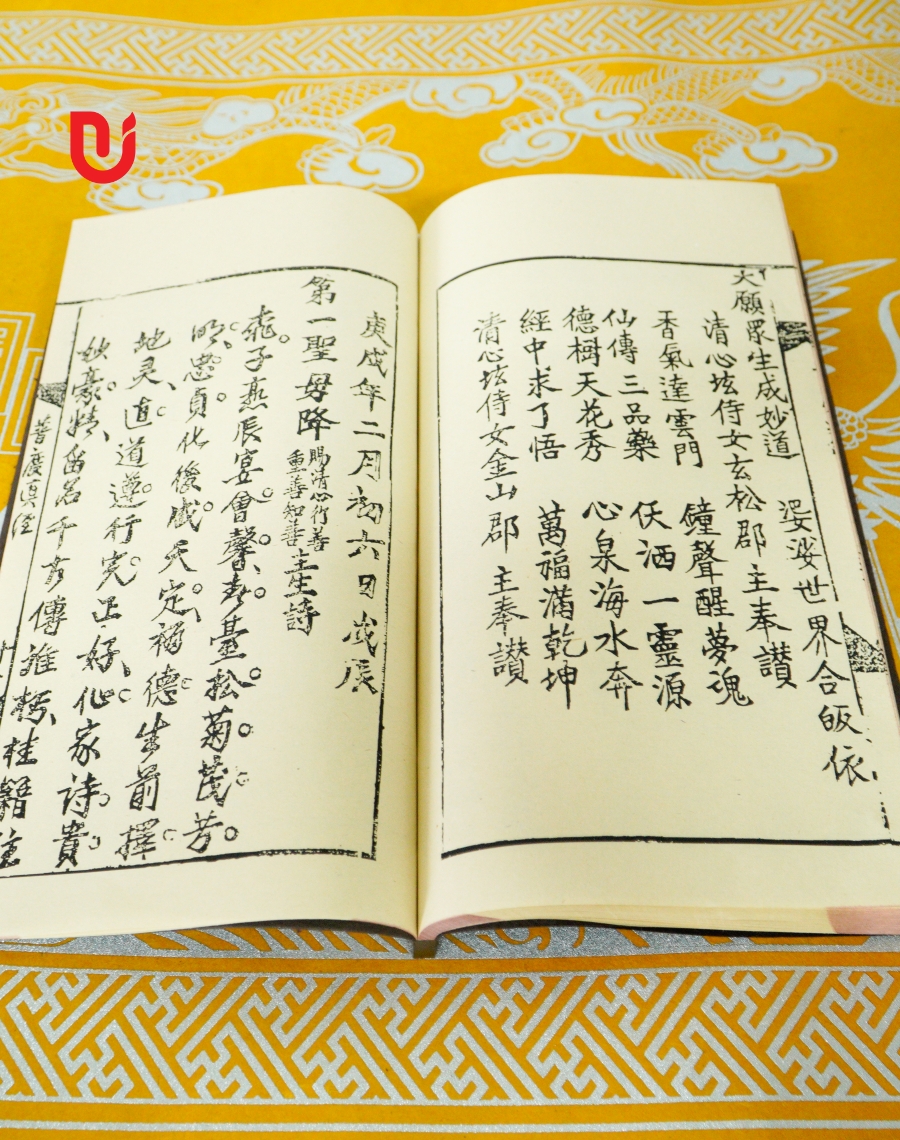 大願眾生成妙道 娑婆世界合皈依
清心坛侍女玄松郡主奉讃
香氣達雲門 鐘聲醒夢魂
仙傳三品藥 伏洒一靈源
德樹天花秀 心泉海水奔
經中求了悟 萬福滿乾坤
清心坛侍女金山郡主奉讃
庚戌年二月初六日戊辰
第一聖母降 賜清心行善重善知善主生詩
子燕辰宴會馨 臺松菊茂芳
貞化後成天定 德生前擇
地灵直道遵行完正好 家诗貴
妙豪情留名千古傳 桂籍
普度真經